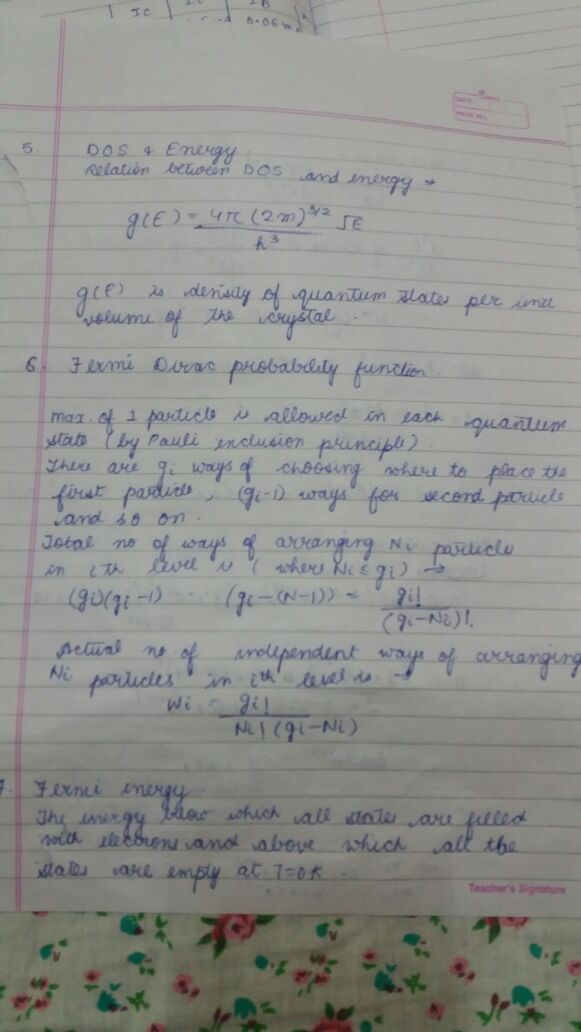 IC
IB
0.06 m
DATE
PAGE NO.
5. DOS & Energy.
Relation between DOS and energy →
g(E) = 4π (2m)^3/2 √E
h³
g(E) is density of quantum states per unit
volume of the crystal.
6. Fermi Dirac probability function.
max. of 1 particle is allowed in each quantum
state (by Pauli exclusion principle).
There are gi ways of choosing where to place the
first particle, (gi-1) ways for second particle
and so on.
Total no of ways of arranging Ni particle
in i th level is (where Ni ≤ gi) →
(gi)(gi-1) (gi-(N-1)) = gi!
(gi-Ni)!.
Actual no of independent ways of arranging
Ni particles in ith level is →
Wi = gi!
Ni! (gi-Ni)
7. Fermi energy.
The energy below which all states are filled
with electrons and above which all the
states are empty at T=0K.
Teacher's Signature